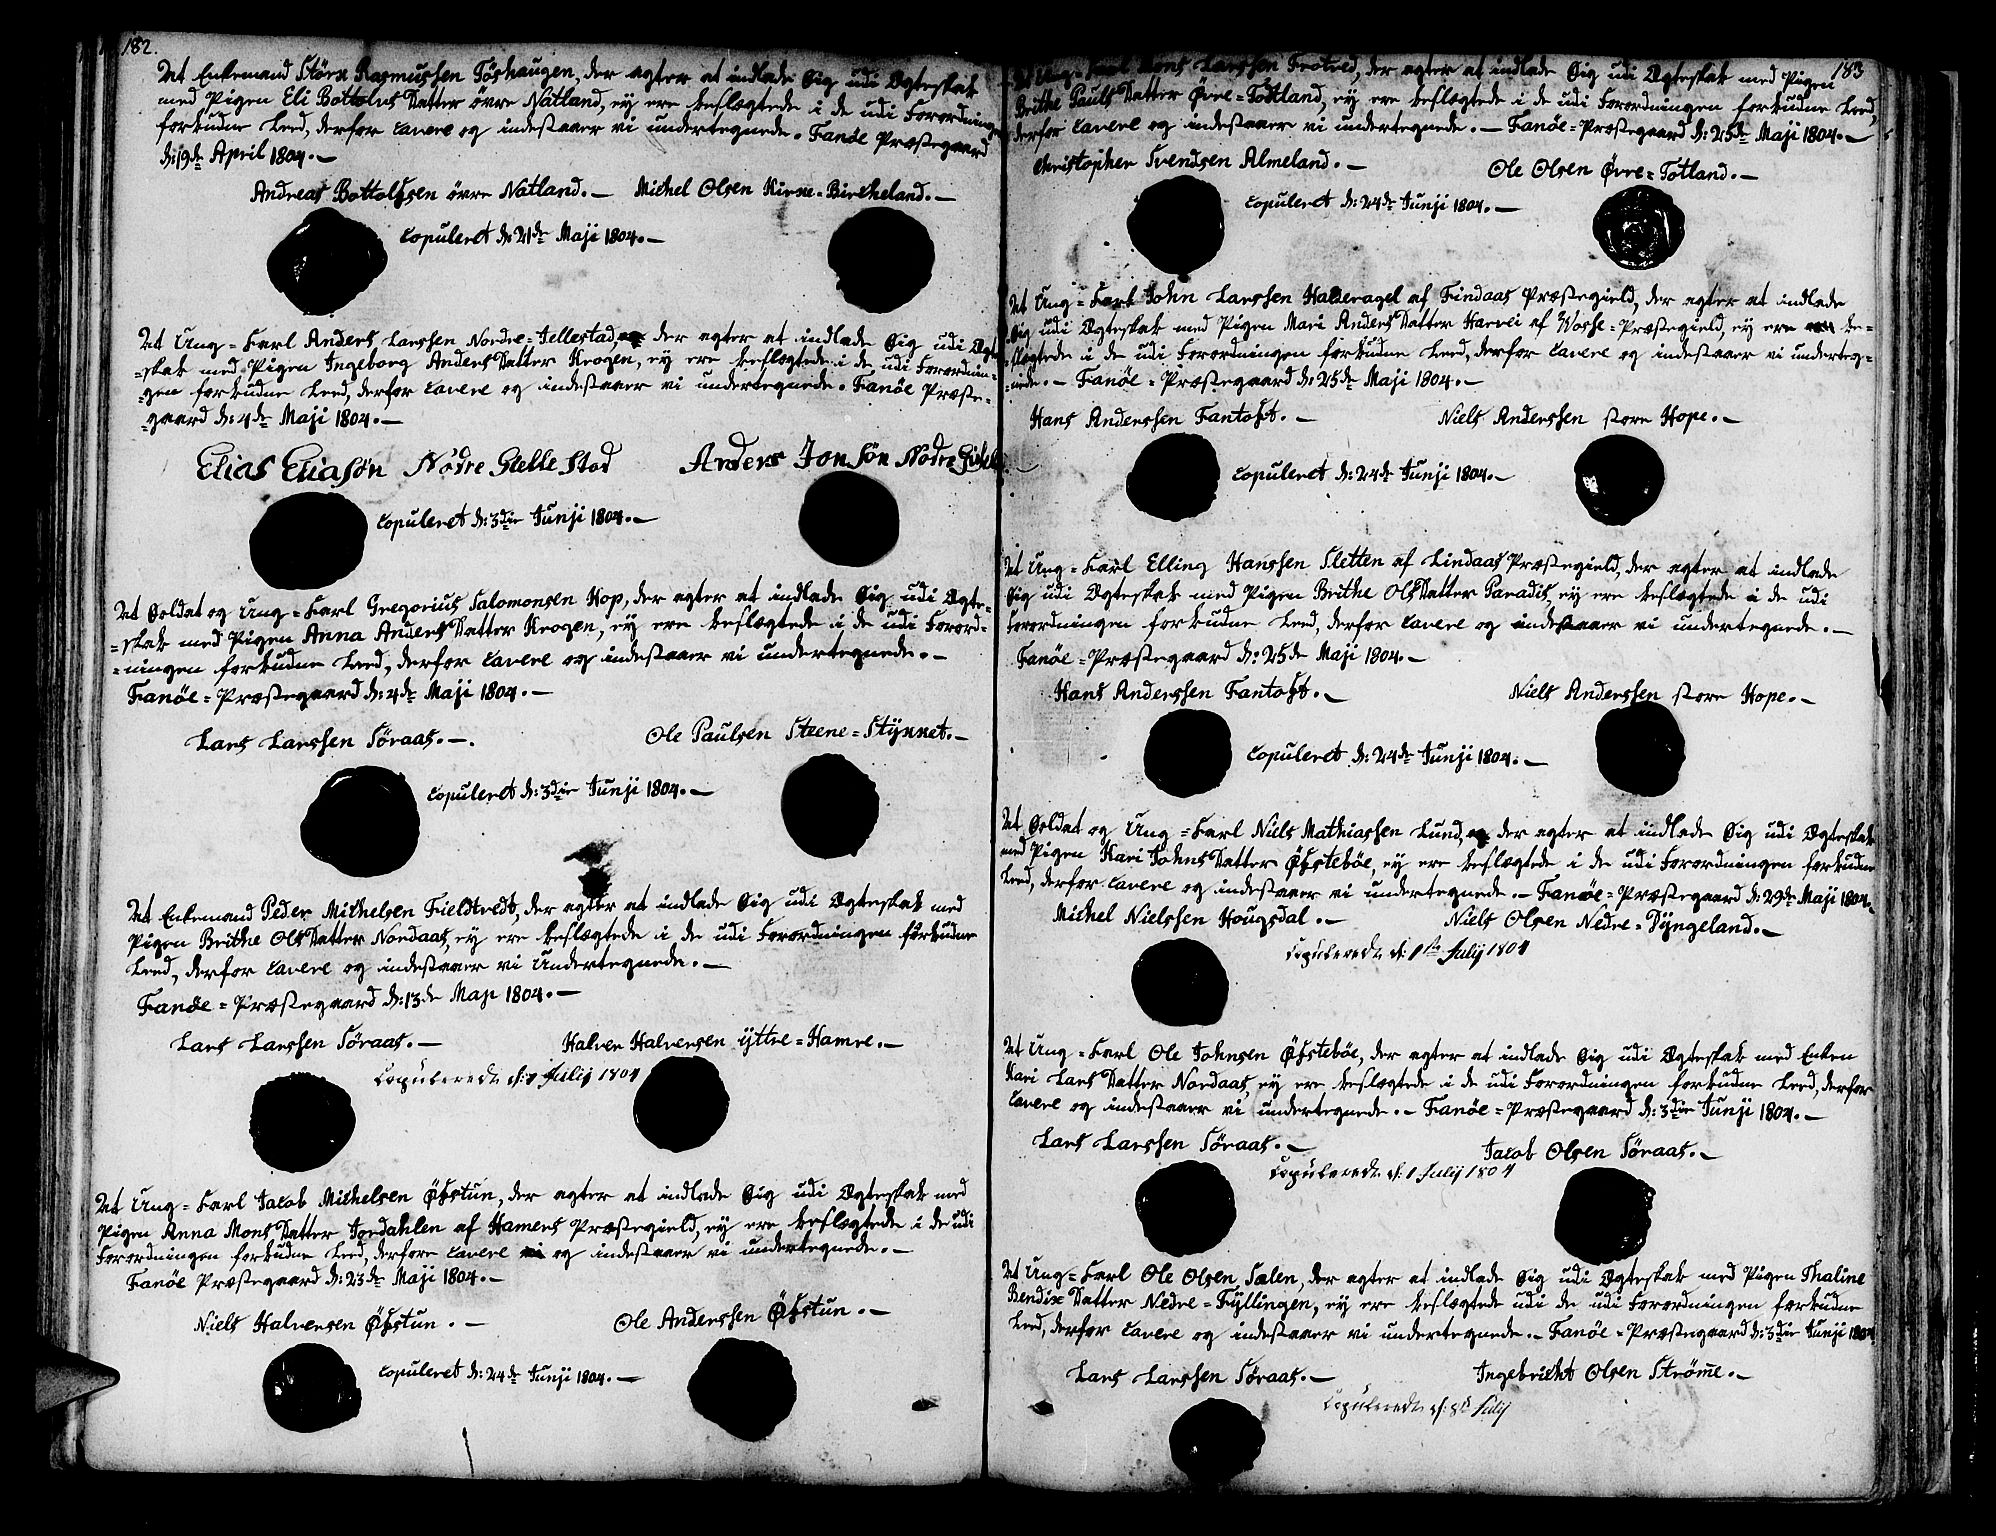 182.
At Enkemand Størx Rasmussen Töshaugen, der agter at indlade Sig udi Ægteskab
med Pigen Eli Bottolvs Datter övre Natland, ey ere beslægtede i de udi Forordningen
forbudne Leed, derfor Cavere og indestaaer vi undertegnede. Fanöe Præstegaard
d: 19de April 1804. —
Andreas Bottolfsen övre Natland. — Michel Olsen Kirke-Bircheland. —
Copuleret d: 21de Maji 1804. —
At Ung-Karl Anders Larssen Nordre-Jellestad, der agter at indlade Sig udi Ægte-
-skab med Pigen Ingeborg Anders Datter Krogen, ey ere beslægtede i de udi Forordnin-
-gen forbudne Leed, derfor Cavere og indestaaer vi undertegnede. Fanöe Præste-
-gaard d: 4de Maji 1804. —
Elias Eliasön Nödre Gielle Stad Anders Jonsön Nödre
Copuleret d: 3die Junji 1804. —
At Soldat og Ung-Karl Gregorius Salomonsen Hop, der agter at indlade Sig udi Ægte-
-skab med Pigen Anna Anders Datter Krogen, ey ere beslægtede i de udi Forord-
-ningen forbudne Leed, derfor Cavere og indestaaer vi undertegnede. —
Fanöe-Præstegaard d: 4de Maji 1804. —
Lars Larssen Söraas. — Ole Paulsen Steene-Stynnet. —
Copuleret d: 3die Junji 1804. —
At Enkemand Peder Michelsen Fieldtvedt, der agter at indlade Sig udi Ægteskab med
Pigen Brithe Ols Datter Nordaas, ey ere beslægtede i de udi Forordningen forbudne
Leed, derfor Cavere og indestaaer vi Undertegnede. —
Fanöe-Præstegaard d: 13de Maji 1804. —
Lars Larssen Söraas. — Halver Halversen ÿttre-Hamre. —
Copulerede d: 1 Julij 1804
At Ung-Karl Jacob Michelsen Øfstun, der agter at indlade Sig udi Ægteskab med
Pigen Anna Mons Datter Jordahlen af Hamens Præstegield, ey ere beslægtede i de udi
Forordningen forbudne Leed, derfore Cavere og indestaaer vi undertegnede. —
Fanöe Præstegaard d: 23de Maji 1804. —
Niels Halversen Øfstun. — Ole Anderssen Øfstun. —
Copuleret d: 24de Junji 1804. —
183
At Ung-Karl Mons Larssen Frotved, der agter at indlade Sig udi Ægteskab med Pigen
Brithe Pauls Datter Øvre-Todtland, ey ere beslægtede i de udi Forordningen forbudne Leed,
derfor Cavere og indestaaer vi undertegnede. — Fanöe-Præstegaard d: 25de Maji 1804. —
Christopher Svendsen Almeland. — Ole Olsen Øvre-Totland. —
Copuleret d: 24de Junji 1804. —
At Ung-Karl John Larssen Halderagel af Findaas Præstegield, der agter at indlade
Sig udi Ægteskab med Pigen Mari Anders Datter Harvei af Vosse-Præstegield, ey ere be-
-slægtede i de udi Forordningen forbudne Leed, derfor Cavere og indestaaer vi underteg-
-nede. — Fanöe-Præstegaard d: 25de Maji 1804. —
Hans Anderssen Fantoft. — Niels Anderssen store Hope. —
Copuleret d: 24de Junji 1804. —
At Ung-Karl Elling Hanssen Sletten af Lindaas Præstegield, der agter at indlade
Sig udi Ægteskab med Pigen Brithe Ols Datter Paradis, ey ere beslægtede i de udi
Forordningen forbudne Leed, derfor Cavere og indestaaer vi undertegnede. —
Fanöe-Præstegaard d: 25de Maji 1804. —
Hans Anderssen Fantoft. — Niels Anderssen store Hope. —
Copuleret d: 24de Junji 1804. —
At Soldat og Ung-Karl Niels Mathiassen Lund, der agter at indlade Sig udi Ægteskab
med Pigen Kari Johns Datter Øfsteböe, ey ere beslægtede i de udi Forordningen forbudne
Leed, derfor Cavere og indestaaer vi undertegnede. — Fanöe-Præstegaard d: 29de Maji 1804.
Michel Nielssen Hougsdal. — Niels Olsen Nedre-Dÿngeland. —
Copulerede d: 1ste Julij 1804
At Ung-Karl Ole Johnsen Øfsteböe, der agter at indlade Sig udi Ægteskab med Enken
Kari Lars Datter Nordaas, ey ere beslægtede i de udi Forordningen forbudne Leed, derfor
Cavere og indestaaer vi undertegnede. — Fanöe-Præstegaard d: 3die Junji 1804. —
Lars Larssen Söraas. — Jacob Olsen Söraas. —
Copulerede d: 1 Julij 1804
At Ung-Karl Ole Olsen Sælen, der agter at indlade Sig udi Ægteskab med Pigen Thaline
Bendix Datter Nedre-Fÿllingen, ey ere beslægtede udi de udi Forordningen forbudne
Leed, derfor Cavere og indestaaer vi undertegnede. — Fanöe-Præstegaard d: 3die Junji 1804
Lars Larssen Söraas. — Ingebricht Olsen Strøme. —
Copulerede d: 8de Julij